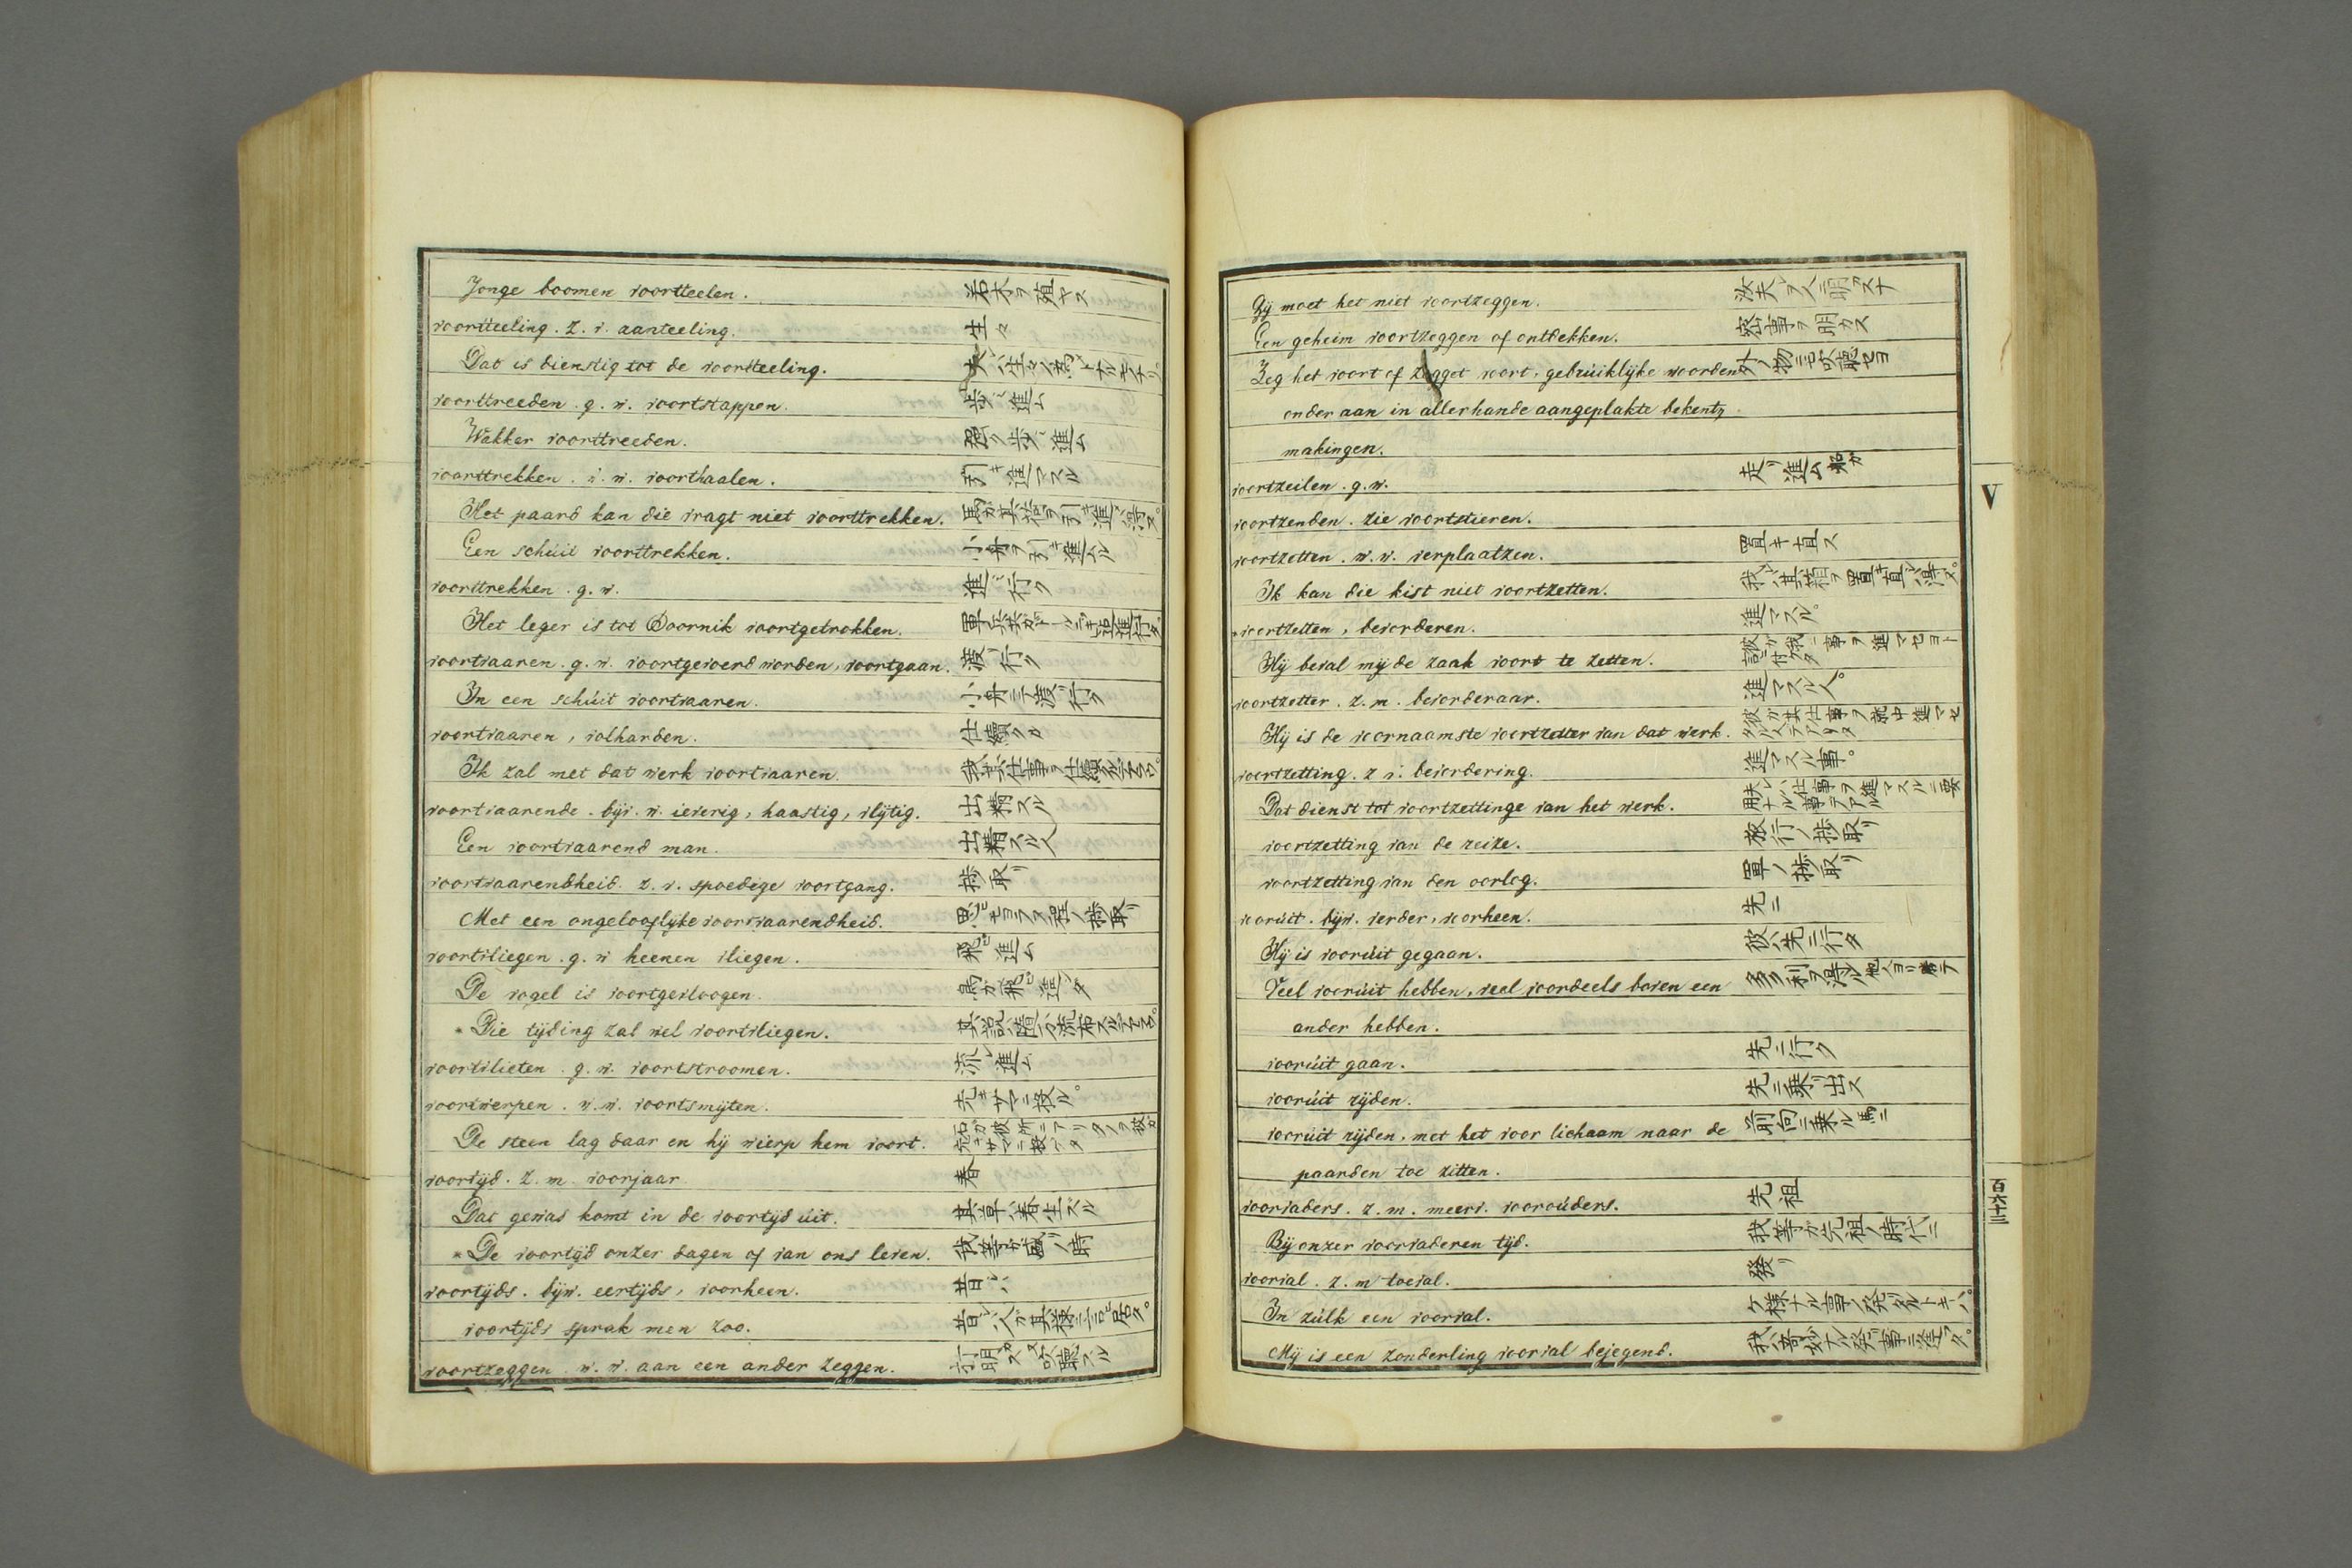 Jonge boomen voortteelen. 若木ヲ殖ヤス
voortteeling. z. v. aanteeling. 生々
Dat is dienstig tot de voortteeling.
voorttreeden. g. w. voortstappen. 歩ミ進ム
Wakker voorttreeden. 歩ミ進ム
voorttrekken. w. w. voorthaalen. 引キ進マスル
Het paard kan die vragt niet voorttrekken.
Een schúit voorttrekken. 小舟ヲ引キ進ムル
voorttrekken. g. w. 進ミ行ク
Het leger is tot Doornik voortgetrokken.
voortvaaren. g. w. voortgevoerd worden, voortgaan. 渡リ行ク
In een schúit voortvaaren. 小舟ニテ渡リ行ク
voortvaaren, volharden. 仕續クル
Ik zal met dat werk voortvaaren.
voortvaarende. bijv. w. ieverig, haastig, vlijtig. 出精スル
Een voortvaarend man. 出精スル人
voortvaarendheid. z. v. spoedige voortgang. 捗取リ
Met een ongelooflijke voortvaarendheid.
voortvliegen. g. w. heenen vliegen. 飛ヒ進ム
De vogel is voortgevloogen. 鳥ガ飛ヒ進ンタ
* Die tijding zal wel voortvliegen.
voortvlieten. g. w. voortstroomen. 流レ進ム
voortwerpen. w. w. voortsmijten. 先キサマニ投ル。
De steen lag daar en hij wierp hem voort.
voortijd. z. m. voorjaar. 春
Dat gewas komt in de voortijd úit. 其草ハ春生ズル
* De voortijd onzer dagen of van ons leven. 我等ガ盛リノ時
voortijds. bijw. eertijds, voorheen. 昔シハ
voortijds sprak men zoo.
voortzeggen. w. w. aan een ander zeggen.
Gij moet het niet voortzeggen.
Een geheim voortzeggen of ontdekken. 密事ヲ明カス
Zeg het voort of zegget voort. gebrúiklijke woorden
onder aan in allerhande aangeplakte bekent=
makingen.
voortzeilen. g. w. 走リ進ム 船ガ
voortzenden. zie voortstieren.
voortzetten. w. w. verplaatzen. 置キ直ス
Ik kan die kist niet voortzetten. 我レハ其箱ヲ置キ直シ得ヌ。
* voortzetten, bevorderen. 進マスル。
Hij beval mij de zaak voort te zetten.
voortzetter. z. m. bevorderaar. 進マスル人。
Hij is de voornaamste voortzetter van dat werk.
voortzetting. z. v. bevordering. 進マスル事。
Dat dienst tot voortzettinge van het werk.
voortzetting van de reize. 旅行ノ捗取リ
voortzetting van den oorlog. 軍ノ捗取リ
voorúit. bijw. verder, voorheen. 先ニ
Hij is voorúit gegaan. 彼ハ先ニ行タ
Veel voorúit hebben, veel voordeels boven een
ander hebben.
voorúit gaan. 先ニ行ク
voorúit rijden. 先ニ乗リ出ス
voorúit rijden, met het voor lichaam naar de 前向ニ乗ル 馬ニ
paarden toe zitten.
voorvaders. z. m. meerv. voorouders. 先祖
Bij onzer voorvaderen tijd. 我等ガ先祖ノ時代ニ
voorval. z. m. toeval. 發リ
In zúlk een voorval.
Mij is een zonderling voorval bejegend.
V
百六十三